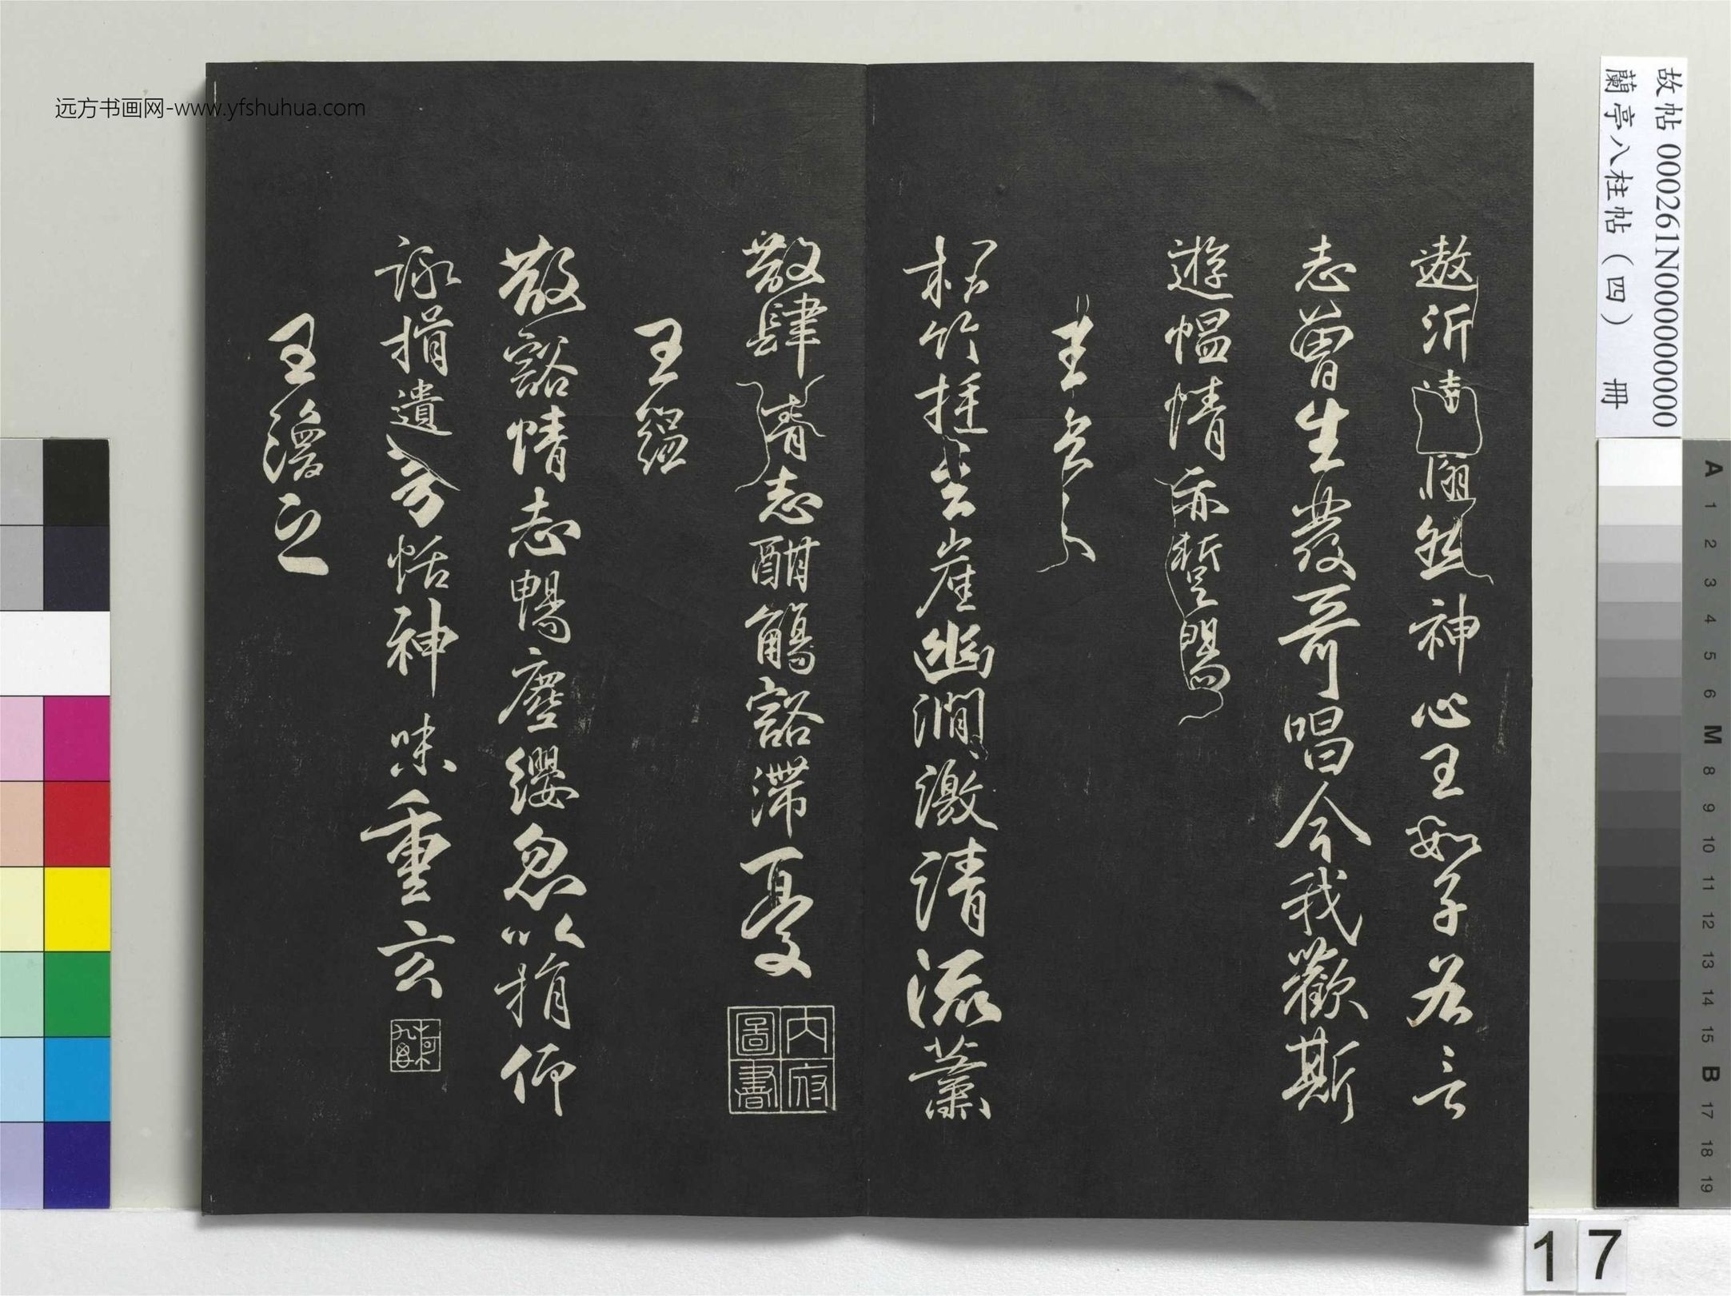 遨沂
翛然神心王數子各言
志曾生發奇唱今我歡斯
遊慍情亦蹔暢
王玄之
松竹挺生崖幽澗激清流蕭
散肆情志酣觴豁滯憂
王蘊
散豁情志暢塵纓忽以捐仰
詠挹遺芳恬神味重玄
王渙之
內府圖書
远方书画网-www.yfshuhua.com
故帖 000261N000000000
蘭亭八柱帖（四） 冊
A 1 2 3 4 5 6 M 8 9 10 11 12 13 14 15 B 17 18 19
17